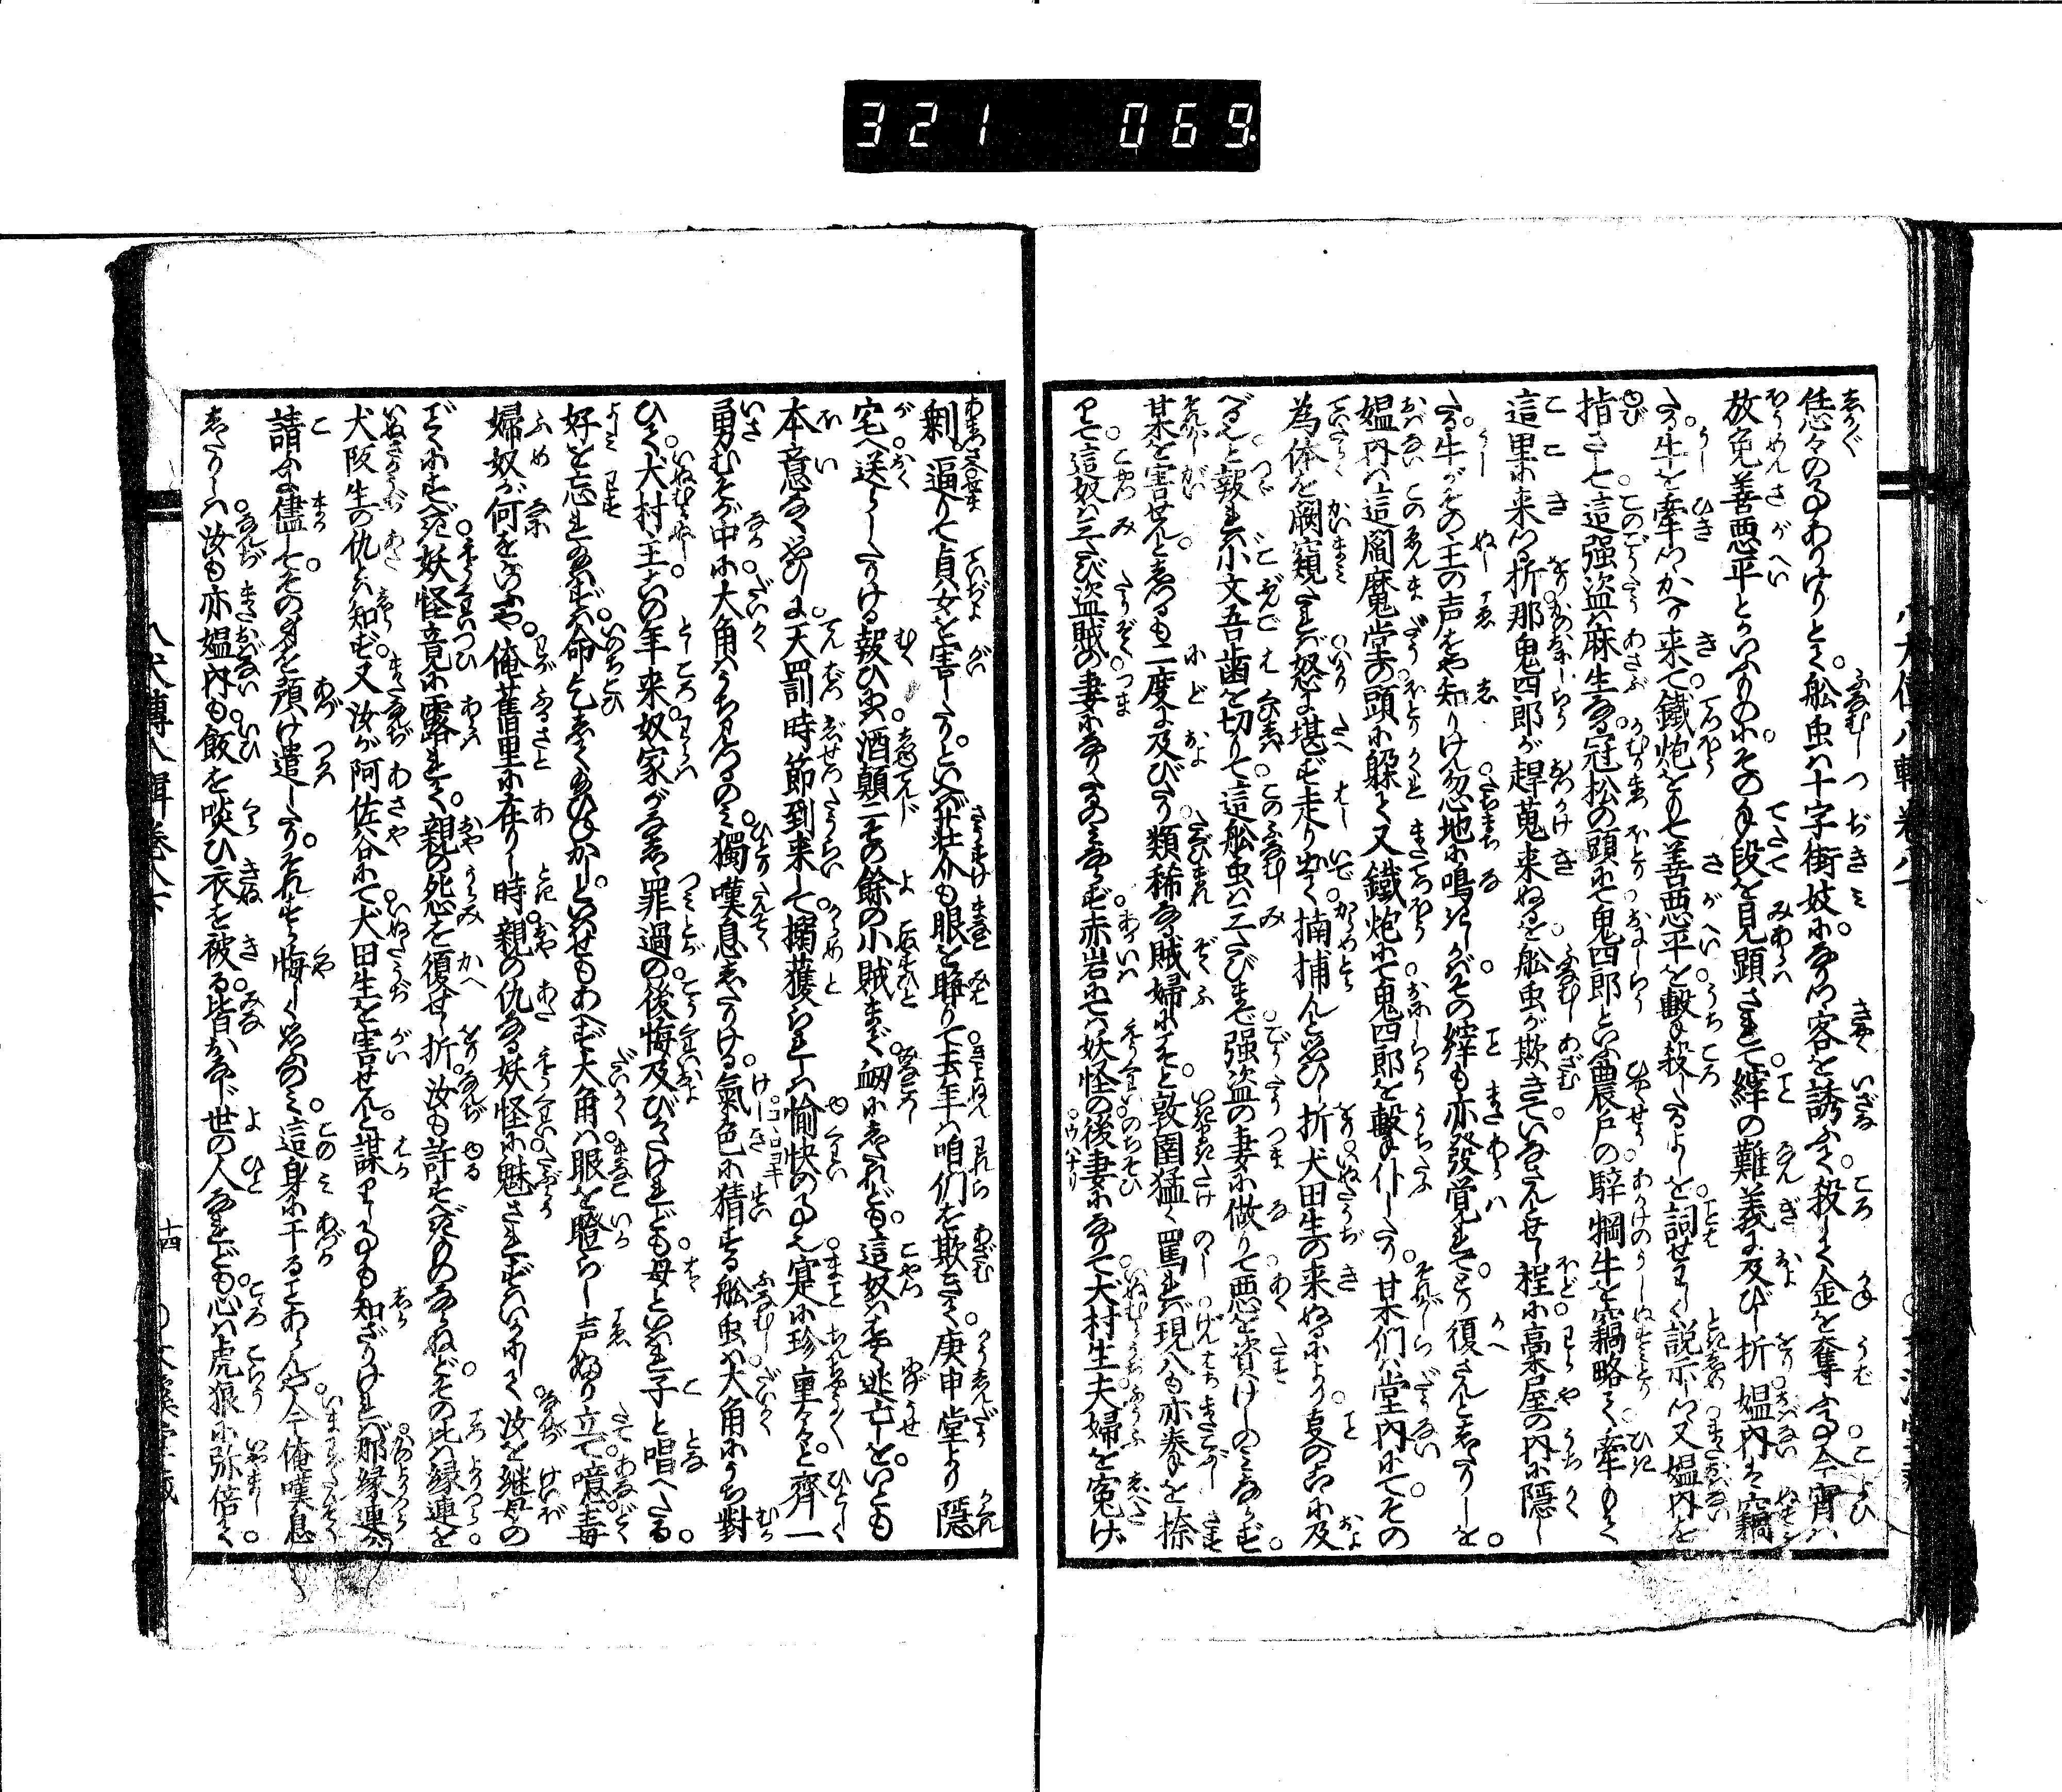 321 069
恁々の事ありけりとて。舩虫は十字街妓になりつ客を誘ふて殺して金を奪ふ事今宵は
放免善悪平とかいふものにその手段を見顕されて繹の難義に及びし折媼内は竊
たる牛を牽つゝかへり来て。鐵炮をもて善悪平を撃殺したるよしを詞せわしく説示しつ又媼内を
指さして這强盗は麻生なる冠松の頭にて鬼四郎といふ農戸の騂犅牛を竊略て牽もて
這里に来つる折那鬼四郎が趕蒐来ぬるを舩虫が欺きていなさんとせし程に藁屋の内に隠し
たる牛がその主の声をや知りけん忽地に鳴しかばその縡も亦發覚れてとり復さんとしたりしを。
媼内は這閻魔堂の頭に躱れて又鐵炮にて鬼四郎を撃仆したり。某們は堂内にてその
為体を闚窺たれば怒に堪ず走り出て捕捕んと思ひし折犬田生の来ぬるにより事の爰に及
べるんと報れば小文吾歯を切りて這舩虫は三たびまで强盗の妻に做りて悪を資けしのみならず。
某を害せんとしつるも二度に及びたり類稀なる賊婦にこそと敦圉猛く罵れば現八も亦拳を捺
りて這奴は三たび盗賊の妻になりしのみならず赤岩にては妖怪の後妻になりて犬村生夫婦を寃げ
剰逼りて貞女を害したり。といへば荘介も眼を睜りて去年は咱們を欺きて。庚申堂より隱
宅へ送らしたりける報ひは酒顛二その餘の小賊まで衂にしたれども。這奴ははや逃亡しを。いとも
本意なく思ひしに天罰時節到来して搦獲られしは愉快の事を寔に珍重々々と齊一
勇むそが中に大角はうち見つるのみ。獨嘆息したりける氣色に猜する舩虫は大角にうち對
ひて。犬村主よの年来奴家がなしし罪過の後悔及びかたけれども母といはれ子と唱へたる。
好を忘れ給はずは命乞して給ひねかし。といはせもあへず大角は眼を瞪らし声ふり立て噫毒
婦奴が何をかいふや。俺舊里に在りし時親の仇なる妖怪に魅されずはいかにして汝を継母の
でくにすべき妖怪竟に露れて。親の死怨を復せし折。汝も許すべきものならねど。その比は縁連を
犬阪生の仇とは知ず。又汝が阿佐谷にて犬田生を害せんと謀りし事も知ざりければ那縁連が
請ふに儘してその身を預け遣したり。それすら悔しく思ふのみ這身に干ることあらんや今俺嘆息
したりしは汝も亦媼内も飯を啖ひ衣を被る皆おなじ世の人なれども心は虎狼に弥倍て
八犬傳八輯巻八下
十四